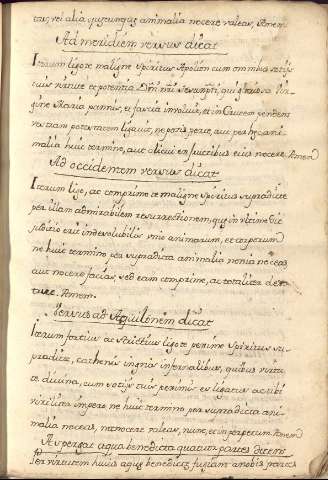 tus, vel alia quæcunque animalia nocere valeas, Amen.
Ad meridiem versus dicat
Iterum ligo te maligne Spiritus Apolion cum omnibus sotijs
tuis virtute et potentia Dñi nri Jesu xpti, qui
gine Maria pannis, et fascia involui, et in Crucem pendens
vestram potestatem ligavit, ne potis per te, aut per hęc ani
malia huic termino, aut alicui ex fructibus eius nocere. Amen
Ad occidentem versus dicat
Iterum ligo, ac comprimo te maligne Spiritus supradicte
per illam admirabilem resurrectionem, quę in ultimo die
judicio erit indissolubilis unio animarum, et corporum
ne huic termino per supradicta animalia nocere
aut nocere facias, sed eam comprime, ac totaliter
Amen.
Versus ad Aquilonem dicat
Iterum fortius ac strictius ligo te pessime Spiritus su
pradicte, cathenis igneis infernalibus, quibus virtu
te divina, cum sotijs tuis pessimis es ligatus ac tibi
impero ne huic termino per supradicta ani
malia noceas, nec nocere valeas, nunc, et in perpetuum. Amen
Aspergat aqua benedicta quatuor partes dicens
Per virtutem huius aquę benedictę fugiam